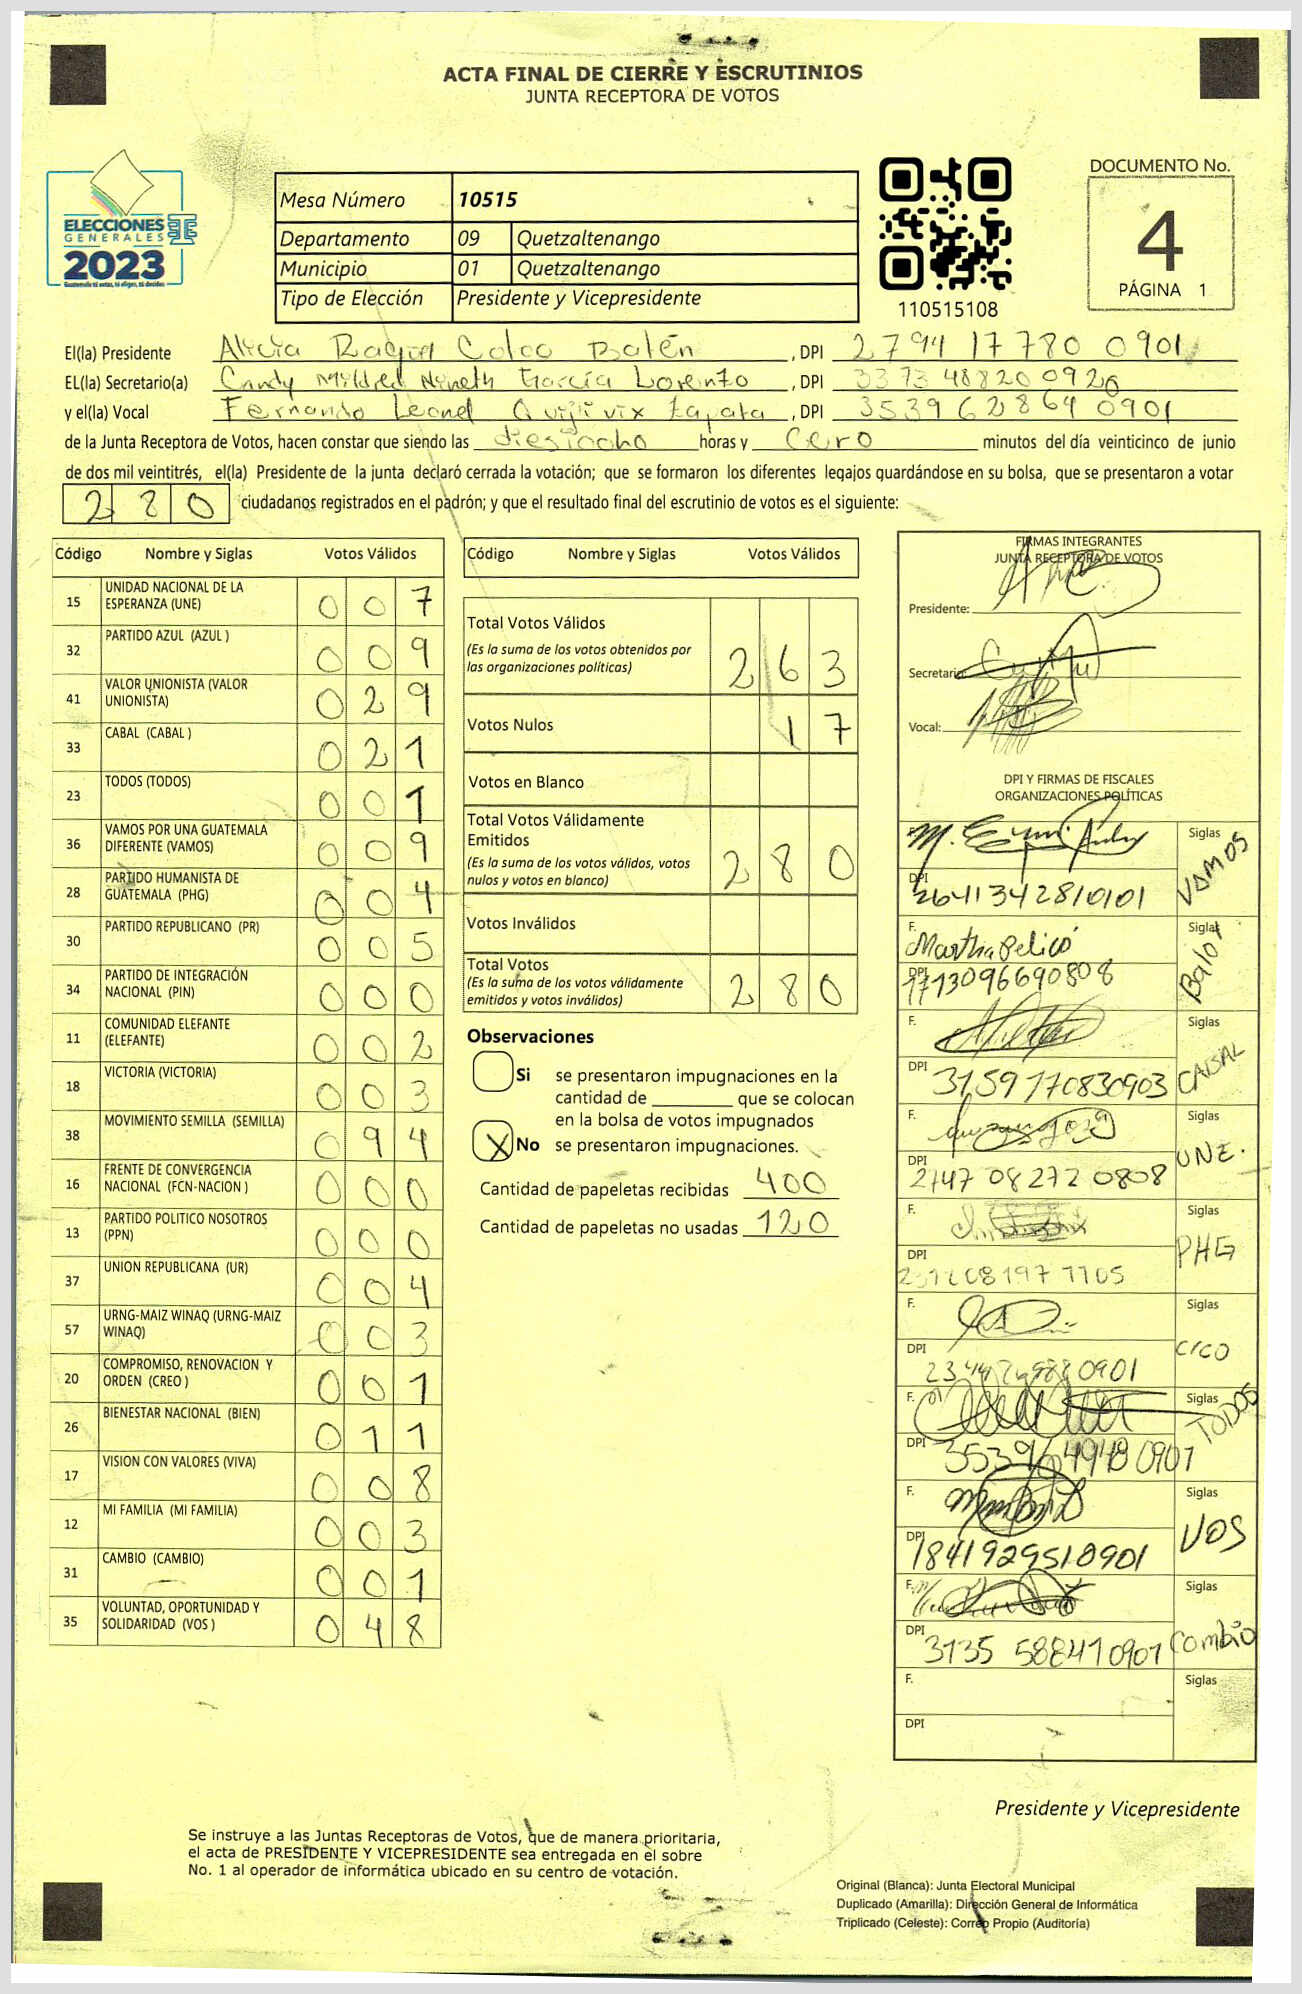 ACTA FINAL DE CIERRE Y ESCRUTINIOS
JUNTA RECEPTORA DE VOTOS
DOCUMENTO No.
4
PÁGINA 1
ELECCIONES
GENERALES
2023
Guatemala tú votas, tú eliges, tú decides
Mesa Número 10515
Departamento 09 Quetzaltenango
Municipio 01 Quetzaltenango
Tipo de Elección Presidente y Vicepresidente
110515108
El(la) Presidente Alicia Raquel Coloo Batén , DPI 2794 17780 0901
EL(la) Secretario(a) Candy Mildred Nineth García Lorenzo , DPI 3373 48820 0920
y el(la) Vocal Fernando Leonel Quijivix Zapata , DPI 3539 62864 0901
de la Junta Receptora de Votos, hacen constar que siendo las diesiocho horas y Cero minutos del día veinticinco de junio
de dos mil veintitrés, el(la) Presidente de la junta declaró cerrada la votación; que se formaron los diferentes legajos guardándose en su bolsa, que se presentaron a votar
280 ciudadanos registrados en el padrón; y que el resultado final del escrutinio de votos es el siguiente:
Código Nombre y Siglas Votos Válidos
15 UNIDAD NACIONAL DE LA ESPERANZA (UNE) 007
32 PARTIDO AZUL (AZUL ) 009
41 VALOR UNIONISTA (VALOR UNIONISTA) 029
33 CABAL (CABAL ) 021
23 TODOS (TODOS) 001
36 VAMOS POR UNA GUATEMALA DIFERENTE (VAMOS) 009
28 PARTIDO HUMANISTA DE GUATEMALA (PHG) 004
30 PARTIDO REPUBLICANO (PR) 005
34 PARTIDO DE INTEGRACIÓN NACIONAL (PIN) 000
11 COMUNIDAD ELEFANTE (ELEFANTE) 002
18 VICTORIA (VICTORIA) 003
38 MOVIMIENTO SEMILLA (SEMILLA) 094
16 FRENTE DE CONVERGENCIA NACIONAL (FCN-NACION ) 000
13 PARTIDO POLITICO NOSOTROS (PPN) 000
37 UNION REPUBLICANA (UR) 004
57 URNG-MAIZ WINAQ (URNG-MAIZ WINAQ) 003
20 COMPROMISO, RENOVACION Y ORDEN (CREO ) 001
26 BIENESTAR NACIONAL (BIEN) 011
17 VISION CON VALORES (VIVA) 008
12 MI FAMILIA (MI FAMILIA) 003
31 CAMBIO (CAMBIO) 001
35 VOLUNTAD, OPORTUNIDAD Y SOLIDARIDAD (VOS ) 048
Código Nombre y Siglas Votos Válidos
Total Votos Válidos 263
(Es la suma de los votos obtenidos por
las organizaciones políticas)
Votos Nulos 17
Votos en Blanco
Total Votos Válidamente
Emitidos 280
(Es la suma de los votos válidos, votos
nulos y votos en blanco)
Votos Inválidos
Total Votos 280
(Es la suma de los votos válidamente
emitidos y votos inválidos)
Observaciones
Si se presentaron impugnaciones en la
cantidad de que se colocan
en la bolsa de votos impugnados
X No se presentaron impugnaciones.
Cantidad de papeletas recibidas 400
Cantidad de papeletas no usadas 120
FIRMAS INTEGRANTES
JUNTA RECEPTORA DE VOTOS
Presidente:
Secretario:
Vocal:
DPI Y FIRMAS DE FISCALES
ORGANIZACIONES POLÍTICAS
F. Siglas VAMOS
DPI 2641134281 0101
F. Martha Pelicó Siglas
DPI 1713096690808
F. Siglas CABAL
DPI 3159170830903
F. Siglas UNE.
DPI 2147 08272 0808
F. Siglas PHG
DPI
F. Siglas
DPI
F. Siglas TODOS
DPI
F. Siglas VOS
DPI 1841929510901
F. Siglas Cambio
DPI 3135 58841 0901
F. Siglas
DPI
Presidente y Vicepresidente
Se instruye a las Juntas Receptoras de Votos, que de manera prioritaria,
el acta de PRESIDENTE Y VICEPRESIDENTE sea entregada en el sobre
No. 1 al operador de informática ubicado en su centro de votación.
Original (Blanca): Junta Electoral Municipal
Duplicado (Amarilla): Dirección General de Informática
Triplicado (Celeste): Correo Propio (Auditoría)